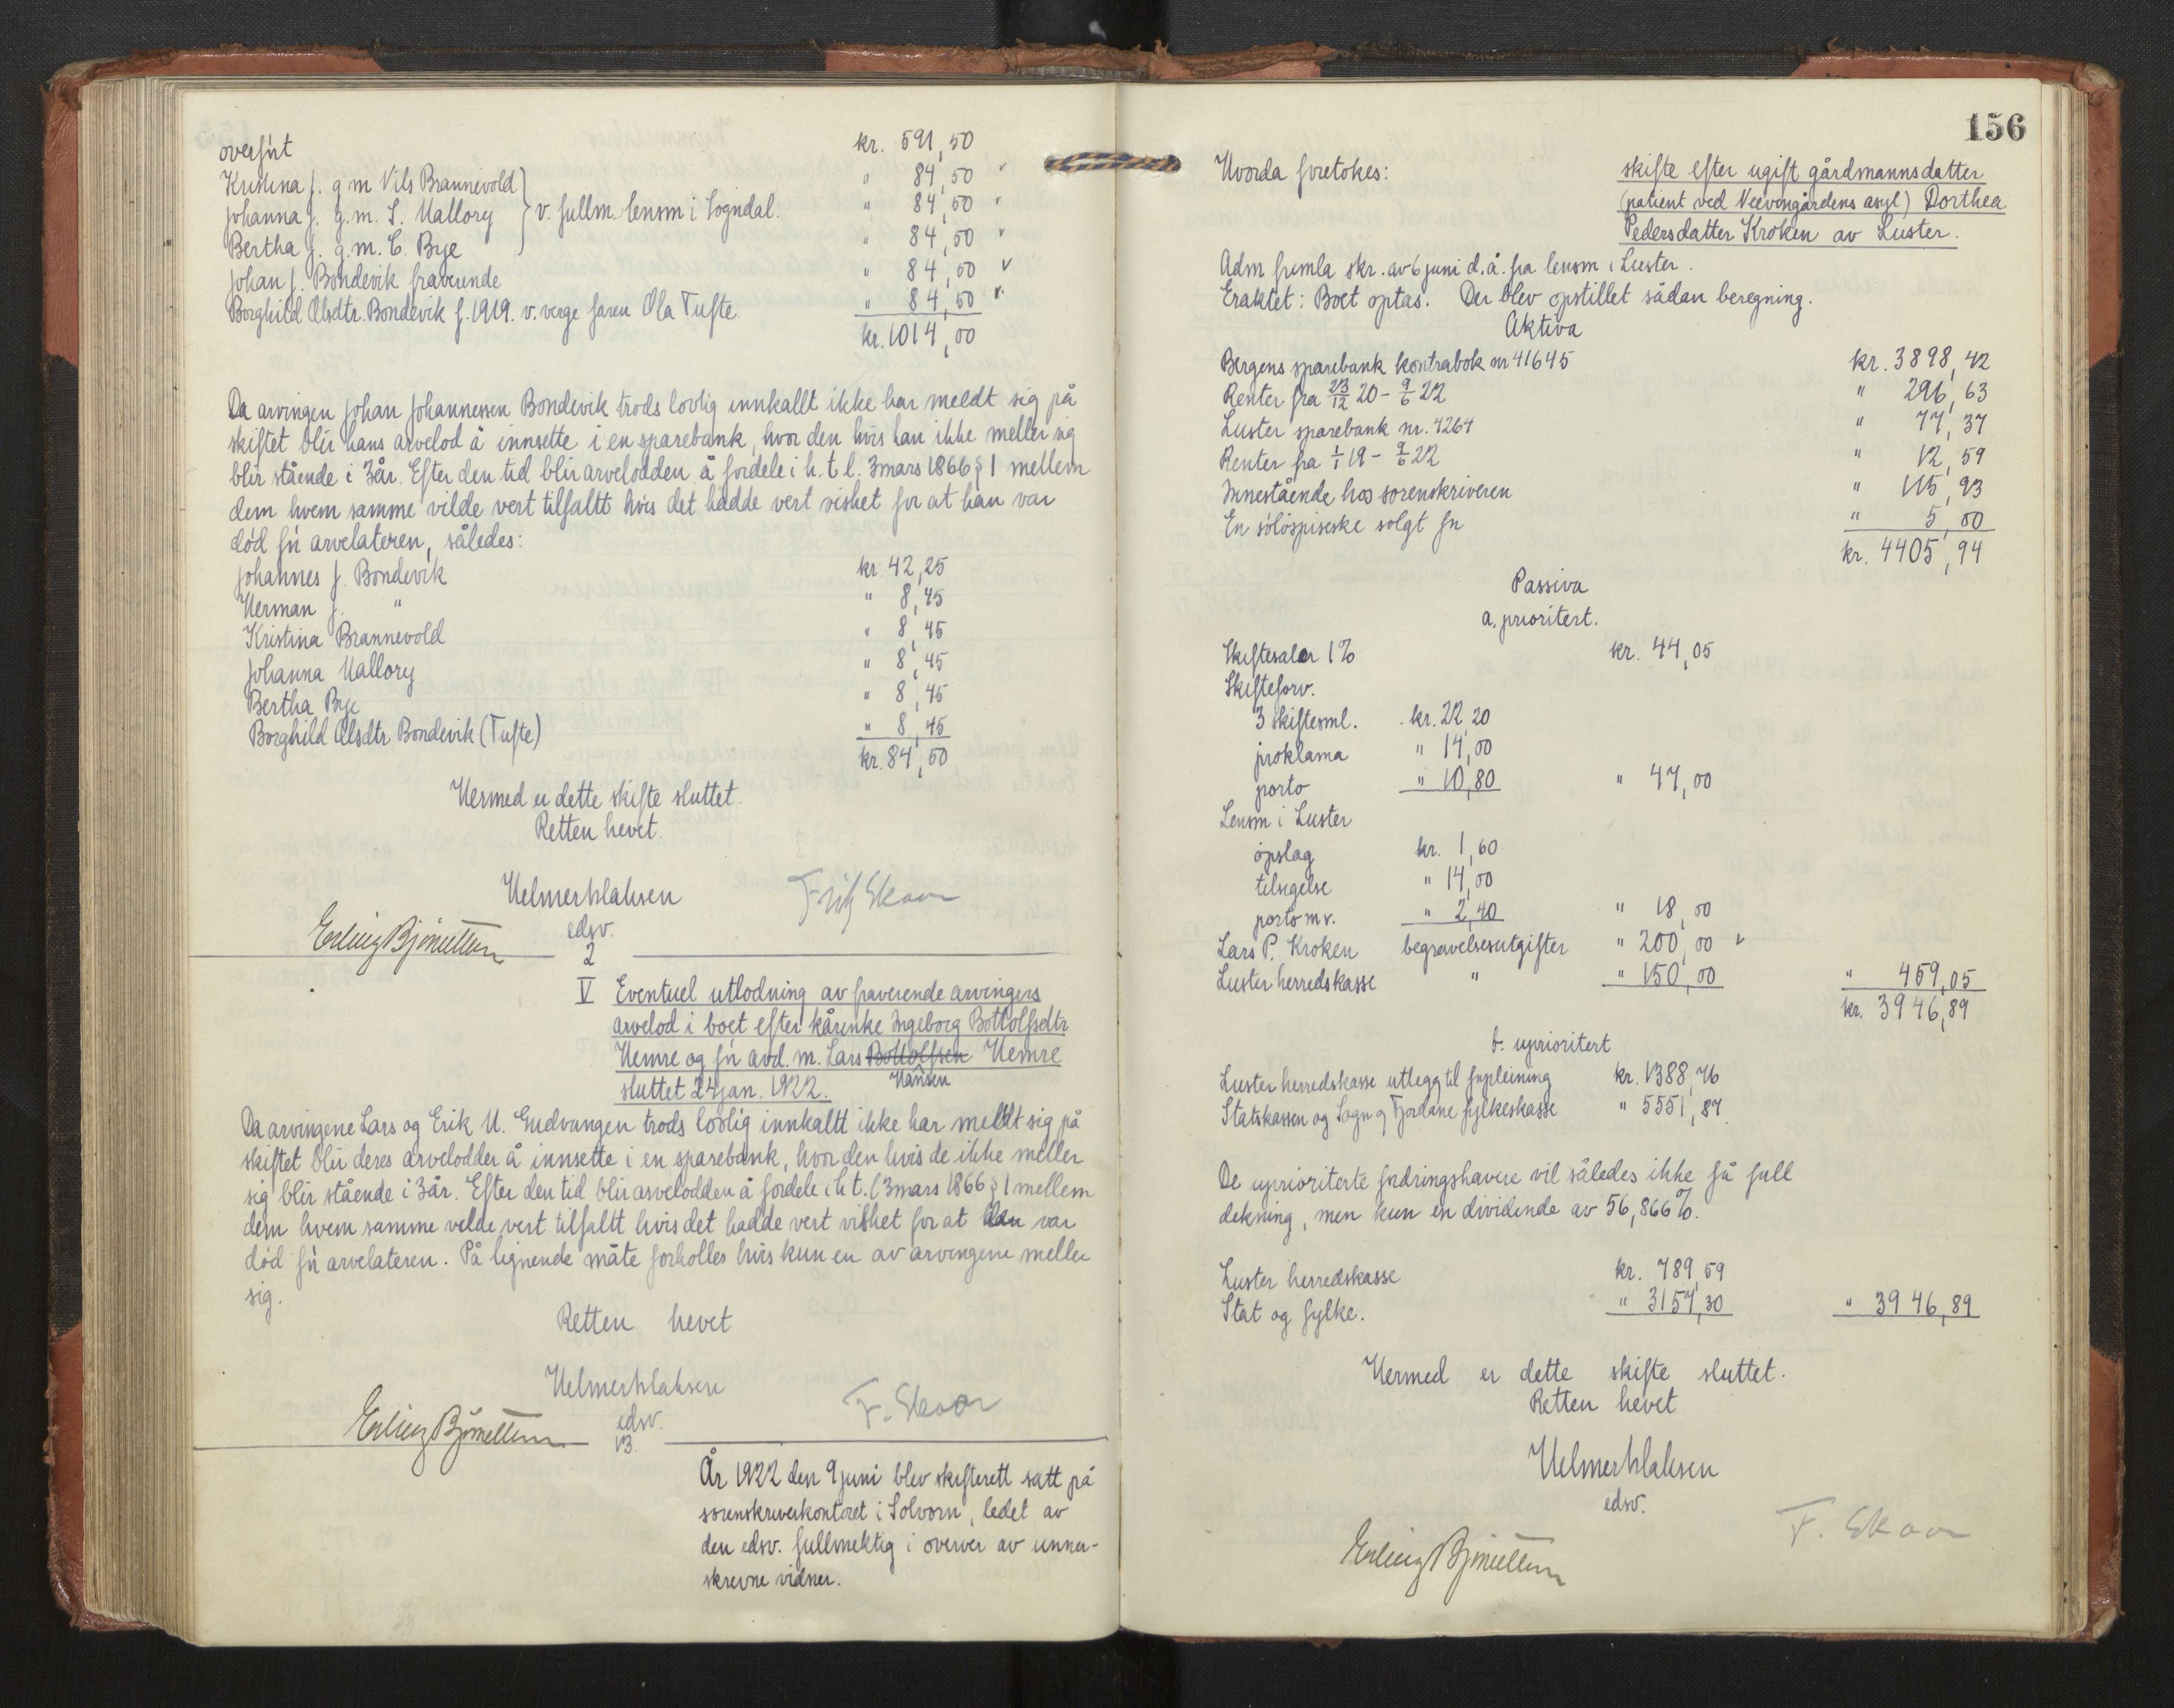 overført kr. 591,50
Kristina J. g m Nils Brannevold } " 84,50 v
Johanna J. g.m. S. Hallory } v. fullm. lensm i Sogndal. " 84,50 v
Bertha J. g.m. C. Bye } " 84,50 v
Johan J. Bondevik fraverende " 84,50 v
Borghild Olsdtr. Bondevik f. 1919. v. verge faren Ola Tufte. " 84,50 v
kr. 1014,00
Da arvingen Johan Johannessen Bondevik trods lovlig innkallt ikke har meldt sig på
skiftet blir hans arvelod å innsette i en sparebank, hvor den hvis han ikke meller sig
blir stående i 3 år. Efter den tid blir arvelodden å fordele i h. t l. 3 mars 1866 § 1 mellem
dem hvem samme vilde vert tilfaltt hvis det hadde vert vishet for at han var
død før arvelateren, således:
Johannes J. Bondevik kr. 42,25
Herman J. " " 8,45
Kristina Brannevold " 8,45
Johanna Hallory " 8,45
Bertha Bye " 8,45
Borghild Olsdtr Bondevik (Tufte) " 8,45
kr. 84,50
Hermed er dette skifte sluttet.
Retten hevet.
Helmer Klaksen
Fritz Skaar
edsv.
Erling Bjønetten
2
V Eventuel utlodning av fraverende arvingers
arvelod i boet efter kårenke Ingeborg Bottolfsdtr
Hemre og før avd. m. Lars Bottolfsen Hemre
Hansen
sluttet 24 jan. 1922.
Da arvingene Lars og Erik H. Gudvangen trods lovlig innkaltt ikke har meldt sig på
skiftet blir deres arvelodder å innsette i en sparebank, hvor den hvis de ikke meller
sig blir stående i 3 år. Efter den tid blir arvelodden å fordele i h t. l 3 mars 1866 § 1 mellem
dem hvem samme vilde vert tilfaltt hvis det hadde vert vishet for at han var
død før arvelateren. På lignende måte forholles hvis kun en av arvingene meller
sig.
Retten hevet
Helmer Klaksen
F. Skaar
edsv.
Erling Bjønetten
13.
År 1922 den 9 juni blev skifterett satt på
sorenskriverkontoret i Solvorn, ledet av
den edsv. fullmektig i overver av unner-
skrevne vidner.
156
Hvorda foretokes:
skifte efter ugift gårdmannsdatter
(patient ved Neevengårdens asyl) Dorthea
Pedersdatter Kroken av Luster.
Adm fremla skr. av 6 juni d. å. fra lensm i Luster.
Eraktet: Boet optas. Der blev opstillet sådan beregning.
Aktiva
Bergens sparebank kontrabok nr 41645 kr. 3898,42
Renter fra 23/12 20 - 9/6 22 " 296,63
Luster sparebank nr. 4264 " 77,37
Renter fra 1/1 19 - 9/6 22 " 12,59
Innestående hos sorenskriveren " 115,93
En sølvspiseske solgt for " 5,00
kr. 4405,94
Passiva
a. prioritert.
Skiftesaler 1% kr. 44,05
Skifteforv.
3 skiftesml. kr. 22,20
proklama " 14,00
porto " 10,80 " 47,00
Lensm i Luster
opslag kr. 1,60
tilsigelse " 14,00
porto m v. " 2,40 " 18,00
Lars P. Kroken begravelsesutgifter " 200,00 v
Luster herredskasse " " 150,00 " 459,05
kr. 3946,89
b. uprioritert
Luster herredskasse utlegg til forpleining kr. 1388,76
Statskassen og Sogn og Fjordane fylkeskasse " 5551,87
De uprioriterte fordringshavere vil således ikke få full
dekning, men kun en dividende av 56,866%.
Luster herredskasse kr. 789,59
Stat og fylke. " 3157,30 " 3946,89
Hermed er dette skifte sluttet.
Retten hevet
Helmer Klaksen
edsv.
F. Skaar
Erling Bjønetten